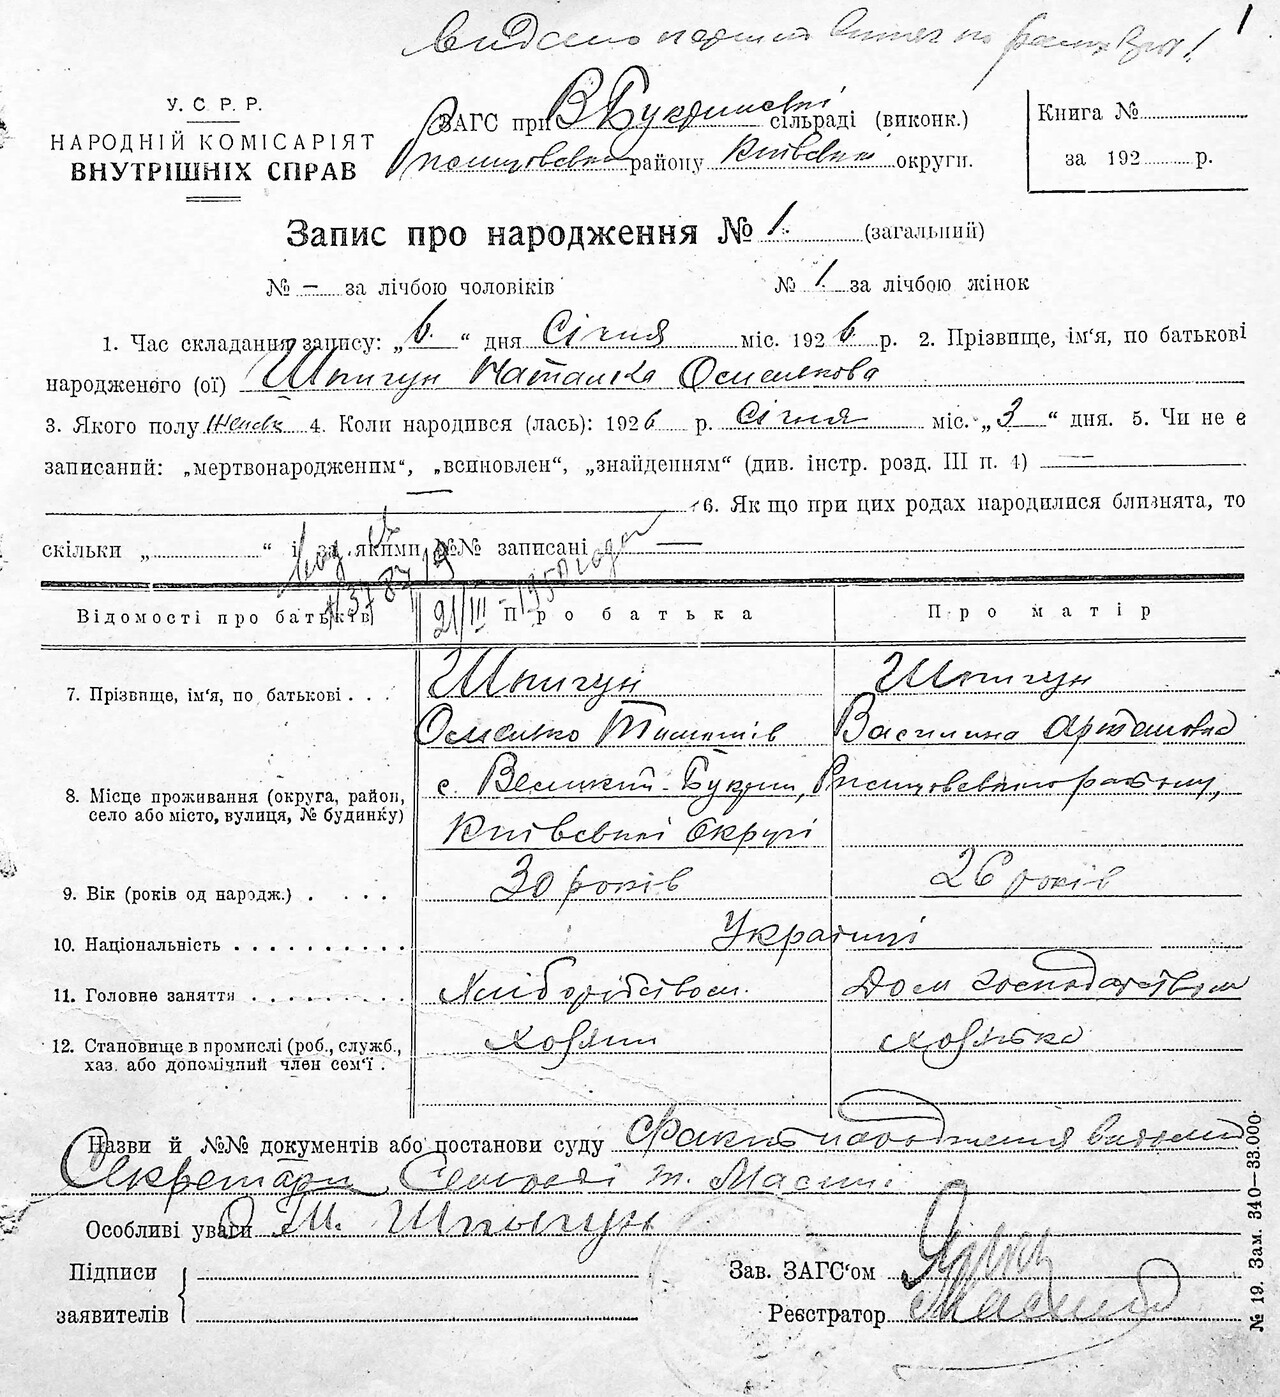 видано
1
У. С. Р. Р.
НАРОДНІЙ КОМІСАРІЯТ
ВНУТРІШНІХ СПРАВ
ЗАГС при В Букринські сільраді (виконк.)
району Київськ округи.
Книга №
за 192 р.
Запис про народження № 1. (загальний)
№ — за лічбою чоловіків № 1 за лічбою жінок
1. Час складання запису: „6.“ дня Січня міс. 1926 р. 2. Прізвище, ім‘я, по батькові
народженого (ої) Шпигун Наталка Омелькова
3. Якого полу жіноч 4. Коли народився (лась): 1926 р. Січня міс. „3“ дня. 5. Чи не є
записаний: „мертвонародженим“, „всиновлен“, „знайденням“ (див. інстр. розд. III п. 4) —
— 6. Як що при цих родах народилися близнята, то
скільки „ “ і за якими №№ записані —
21/III - 1950 года
Відомості про батьків Про батька Про матір
7. Прізвище, ім‘я, по батькові . . . Шпигун Шпигун
Омелько Василина Артемовна
8. Місце проживання (округа, район, с. Великий-Букрин, району,
село або місто, вулиця, № будинку) Київської Округі
9. Вік (років од народж.) . . . . 30 років 26 років
10. Національність . . . . . . . . . . Українці
11. Головне заняття . . . . . . . . . Хліборобством. Дом господарством
12. Становище в промислі (роб., служб., Хозяин хозяйка
хаз. або допомічний член сем‘ї .
Назви й №№ документів або постанови суду Факт народження відомий
Секретарю Сільраді т.
Особливі уваги О. Ш. Шпигун
Підписи
заявителів
Зав. ЗАГС‘ом
Реєстратор
№ 19. Зам. 340—33.000.